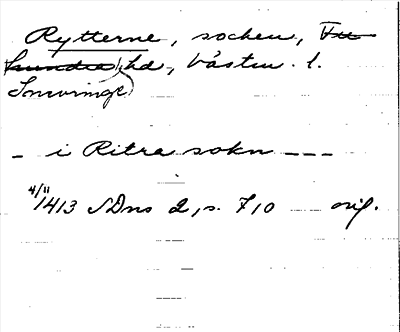 Rytterne, socken, Tu
hundra hd, Västm. l.
Snevringe
_ i Ritra sokn _ _ _
4/11 1413 SDns 2, s. 710 orig.